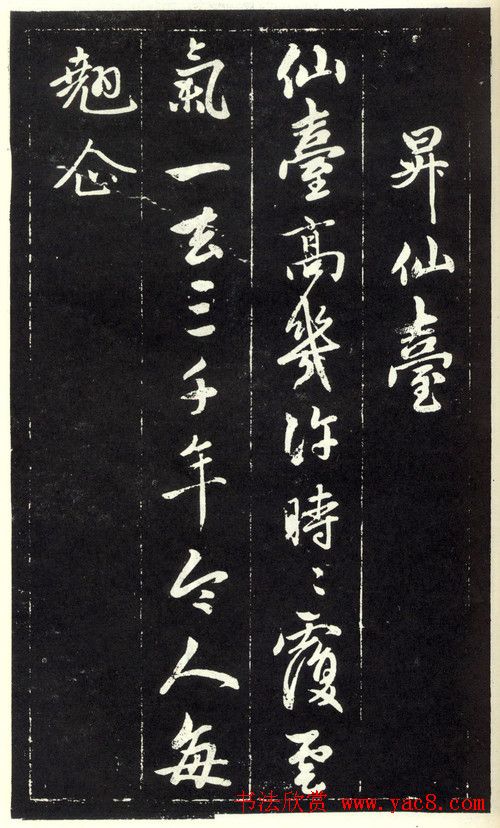 昇仙臺
仙臺高幾許時〻覆雲
氣一去三千年令人每
翹企
书法欣赏 www.yac8.com